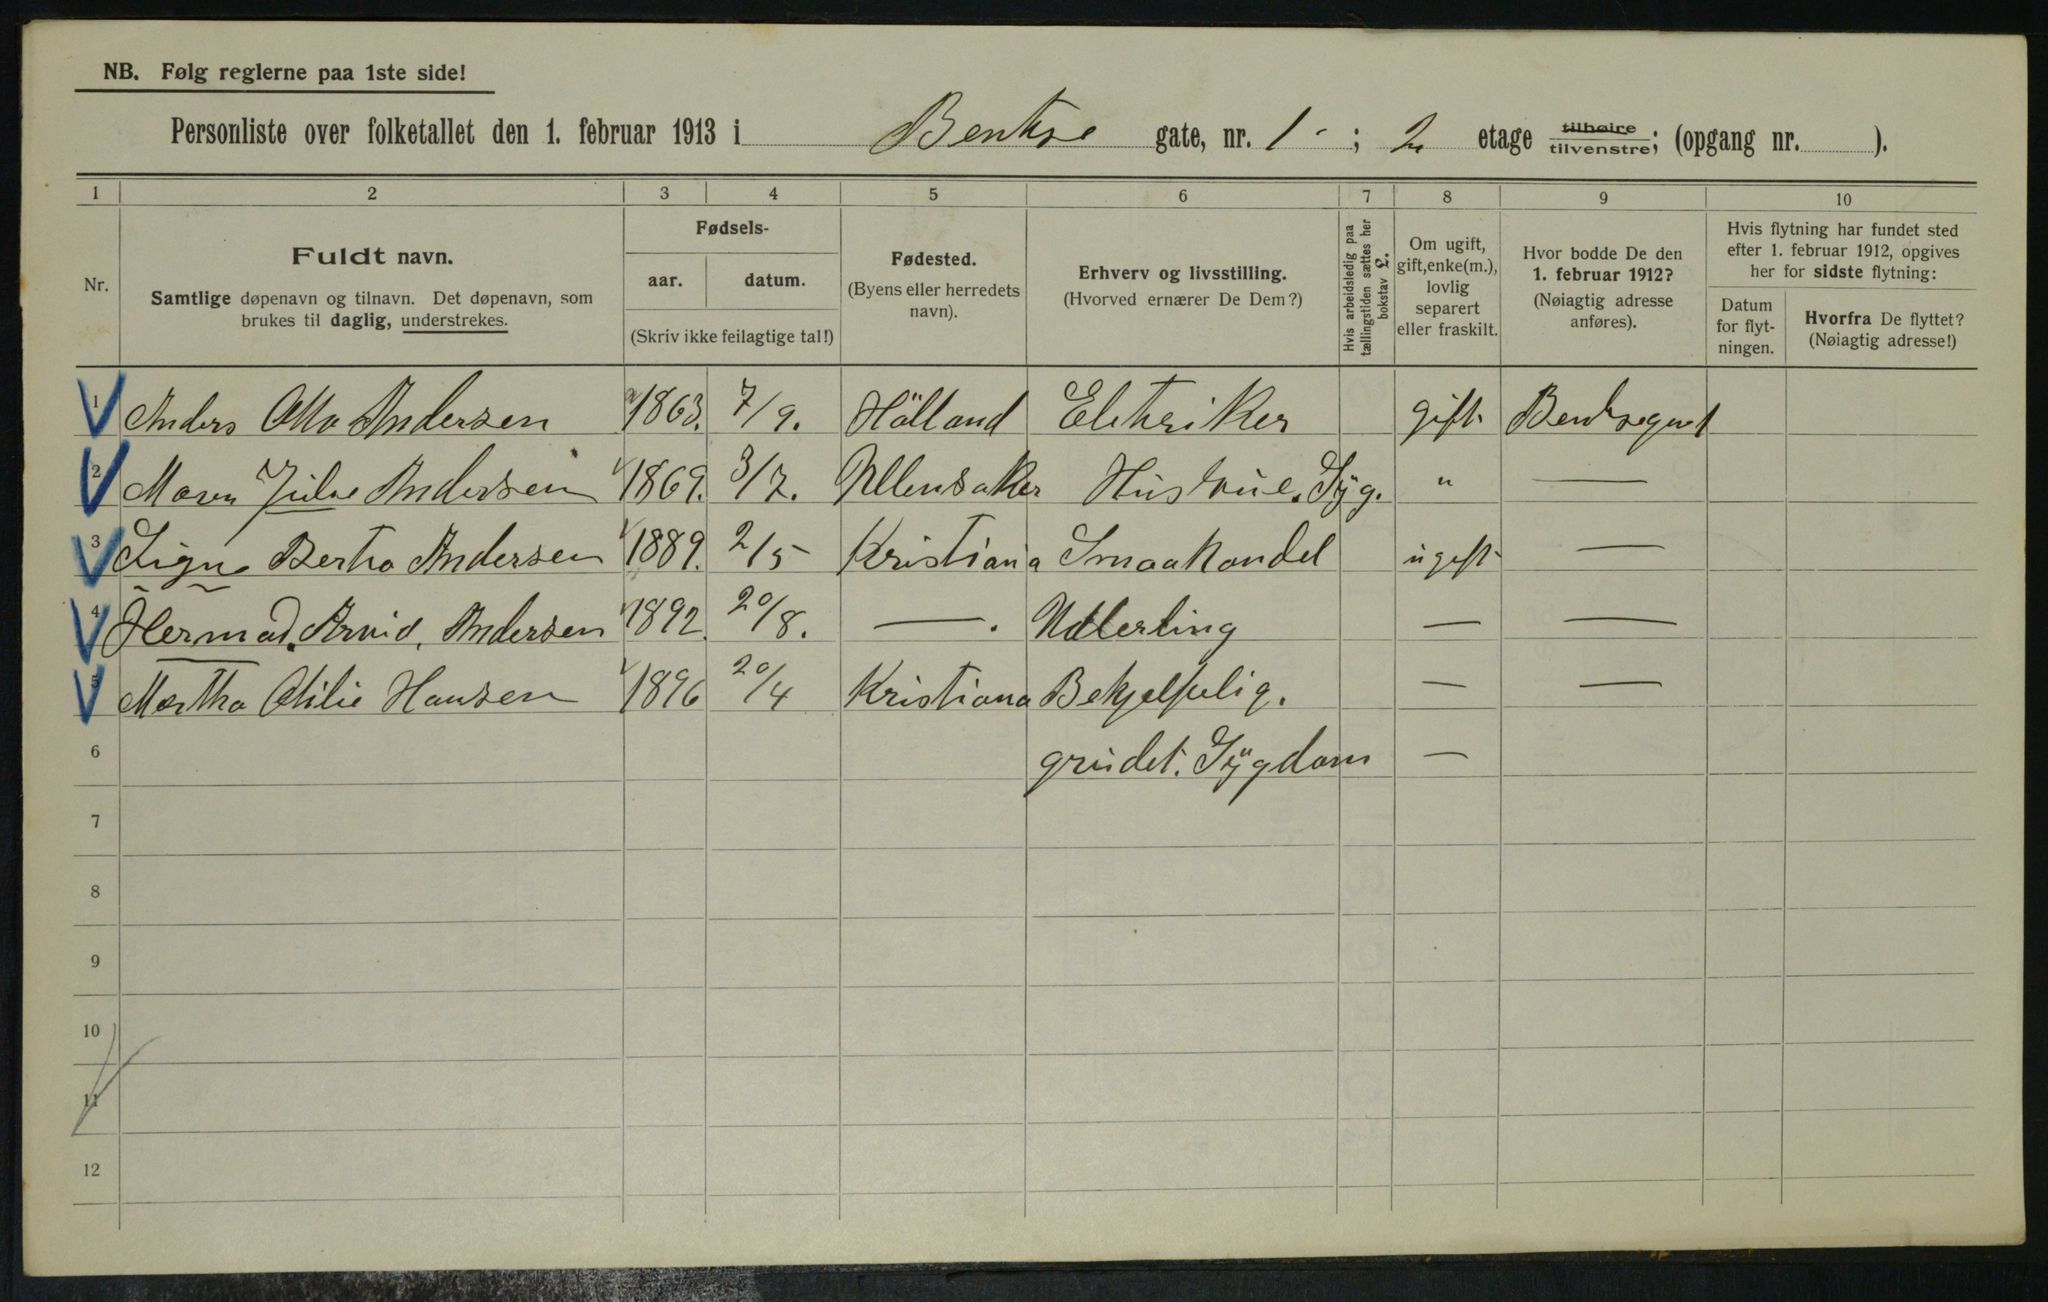 NB. Følg reglerne paa 1ste side!
Personliste over folketallet den 1. februar 1913 i Bentse gate, nr. 1 - ; 2 etage tilhøire tilvenstre; (opgang nr. ).
1 2 3 4 5 6 7 8 9 10
Nr.
Fuldt navn.
Samtlige døpenavn og tilnavn. Det døpenavn, som
brukes til daglig, understrekes.
Fødsels-
aar. datum.
(Skriv ikke feilagtige tal!)
Fødested.
(Byens eller herredets
navn).
Erhverv og livsstilling.
(Hvorved ernærer De Dem?)
Hvis arbeidsledig paa
tællingstiden sættes her
bokstav L.
Om ugift,
gift, enke(m.),
lovlig
separert
eller fraskilt.
Hvor bodde De den
1. februar 1912?
(Nøiagtig adresse
anføres).
Hvis flytning har fundet sted
efter 1. februar 1912, opgives
her for sidste flytning:
Datum
for flyt-
ningen.
Hvorfra De flyttet?
(Nøiagtig adresse!)
1 Anders Otto Andersen 1863. 7/9. Hölland Elektriker gift Bentsegat 1
2 Maren Julie Andersen 1869. 3/7. Ullensaker Hustrue. Syg. " —
3 Signe Berta Andersen 1889. 2/5 Kristiania Smaahandel ugift —
4 Hermod. Arvid. Andersen 1892. 20/8. — . Udlerling — —
5 Martha Otilie Hansen 1896 20/4 Kristiana Behjelpelig. — —
6 grudet. Sÿgdom —
7
8
9
10
11
12